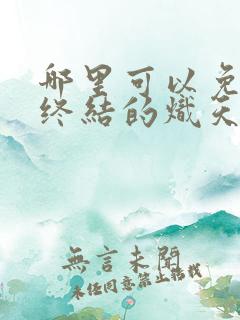 哪里可以免
终结的炽天
無言未開
未经同意禁止转载